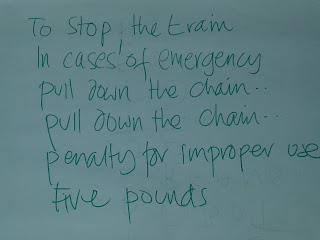 To Stop, the train
In cases of emergency
pull down the chain..
pull down the chain..
penalty for improper use
five pounds